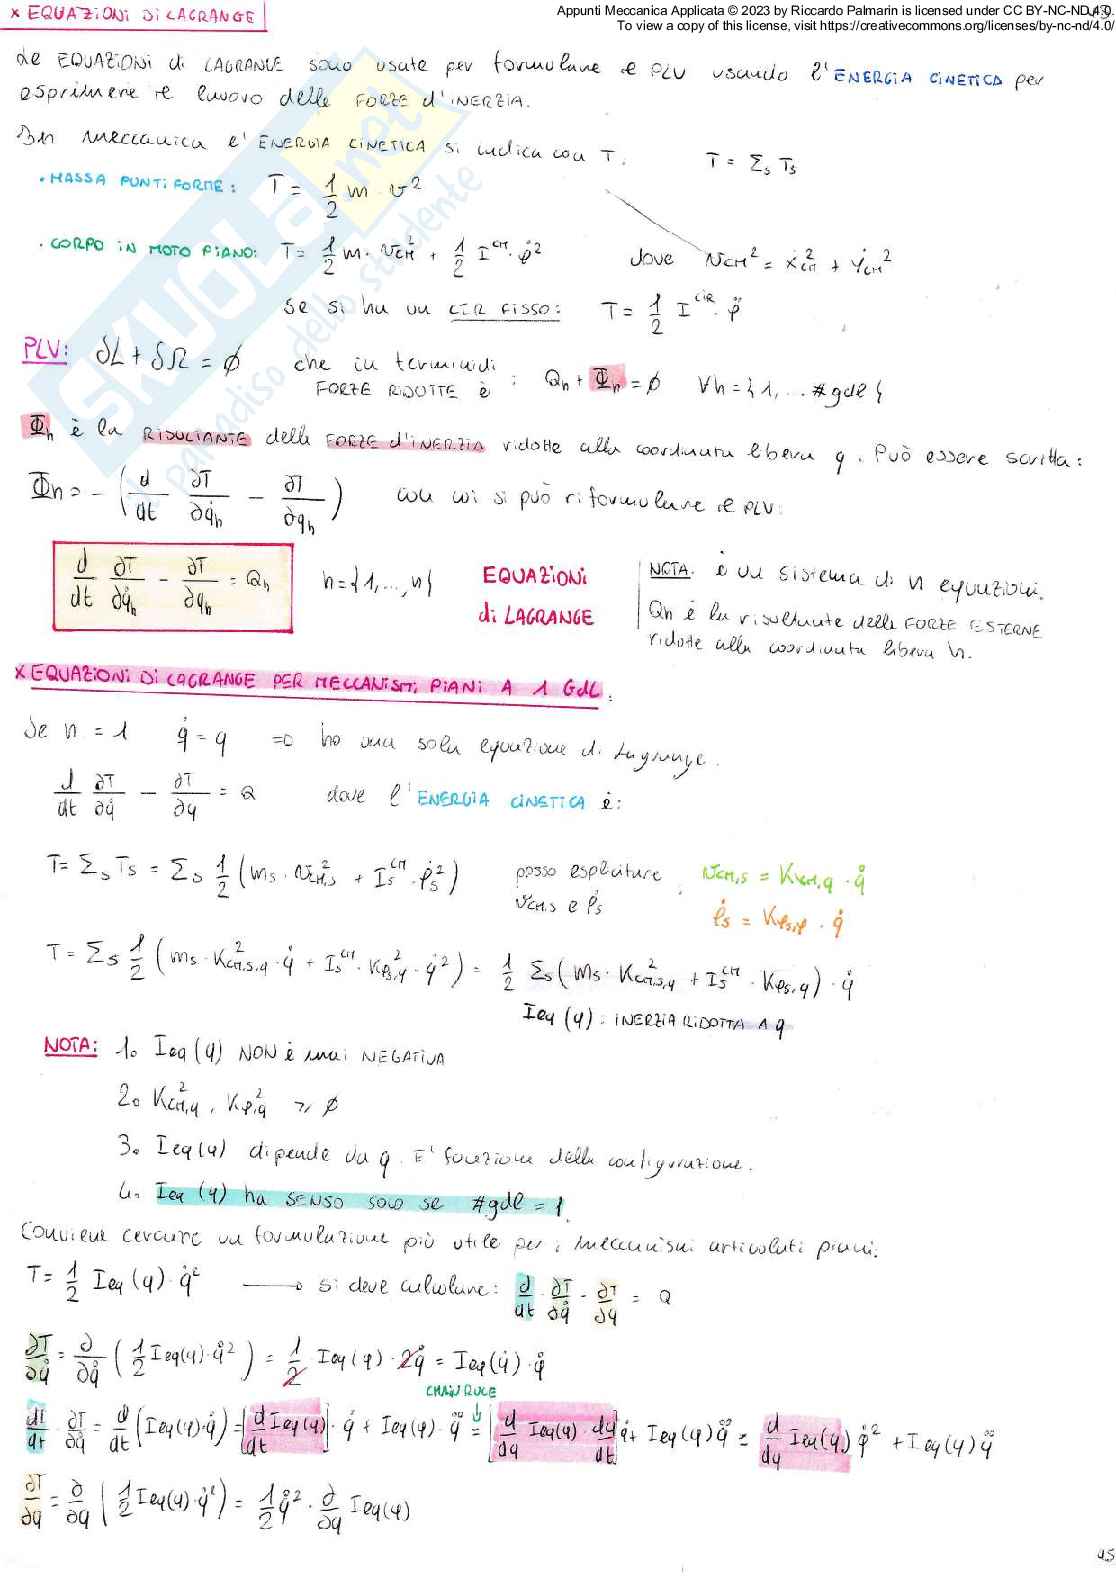 Appunti Meccanica Applicata © 2023 by Riccardo Palmarin is licensed under CC BY-NC-ND 4.0.
To view a copy of this license, visit https://creativecommons.org/licenses/by-nc-nd/4.0/
x EQUAZIONI DI LAGRANGE
Le EQUAZIONI di LAGRANGE sono usate per formulare il PLV usando l'ENERGIA CINETICA per
esprimere il lavoro delle FORZE d'INERZIA.
In meccanica l'ENERGIA CINETICA si indica con T. T = Σs Ts
· MASSA PUNTIFORME: T = 1/2 m · v²
· CORPO IN MOTO PIANO: T = 1/2 m · vCM² + 1/2 I^CM · φ̇² dove vCM² = ẋCM² + ẏCM²
Se si ha un CIR FISSO: T = 1/2 I^CIR · φ̈
PLV: δL + δΩ = ∅ che in termini di
FORZE RIDOTTE è : Qh + Φh = ∅ ∀h = {1, ... #gdl}
Φh è la RISULTANTE delle FORZE d'INERZIA ridotte alla coordinata libera q. Può essere scritta:
Φh = - (d/dt ∂T/∂q̇h - ∂T/∂qh) con cui si può riformulare il PLV:
d/dt ∂T/∂q̇h - ∂T/∂qh = Qh h = {1, ..., n} EQUAZIONI
di LAGRANGE
NOTA. è un sistema di n equazioni.
Qh è la risultante delle FORZE ESTERNE
ridotte alla coordinata libera h.
x EQUAZIONI DI LAGRANGE PER MECCANISMI PIANI A 1 GdL.
Se n = 1 q̇ = q => ho una sola equazione di Lagrange.
d/dt ∂T/∂q̇ - ∂T/∂q = Q dove l'ENERGIA CINETICA è:
T = Σs Ts = Σs 1/2 (ms · vCM,s² + Is^CM · φ̇s²) posso esplicitare vCM,s = KCM,q · q̇
vCM,s e φ̇s φ̇s = Kφs,φ · q̇
T = Σs 1/2 (ms · KCM,s,q² · q̇ + Is^CM · Kφs,q² · q̇²) = 1/2 Σs (ms · KCM,s,q² + Is^CM · Kφs,q) · q̇
Ieq (q) : INERZIA RIDOTTA A q
NOTA: 1. Ieq (q) NON è mai NEGATIVA
2. KCM,q², Kφ,q² ≥ ∅
3. Ieq (q) dipende da q. E' funzione della configurazione.
4. Ieq (q) ha SENSO solo se #gdl = 1.
Conviene cercare una formulazione più utile per i meccanismi articolati piani.
T = 1/2 Ieq (q) · q̇² → si deve calcolare: d/dt · ∂T/∂q̇ - ∂T/∂q = Q
∂T/∂q̇ = ∂/∂q̇ (1/2 Ieq(q) · q̇²) = 1/2 Ieq (q) · 2q̇ = Ieq(q̇) · q̇
CHAIN RULE
dT/dt · ∂T/∂q̇ = d/dt (Ieq(q) · q̇) = [d Ieq(q)/dt] · q̇ + Ieq(q) · q̈ = [d/dq Ieq(q) · dq/dt] q̇ + Ieq(q) q̈ = d/dq Ieq(q) q̇² + Ieq(q) q̈
∂T/∂q = ∂/∂q (1/2 Ieq(q) · q̇²) = 1/2 q̇² · ∂/∂q Ieq(q)
45
SKUOLA.net
il paradiso dello studente